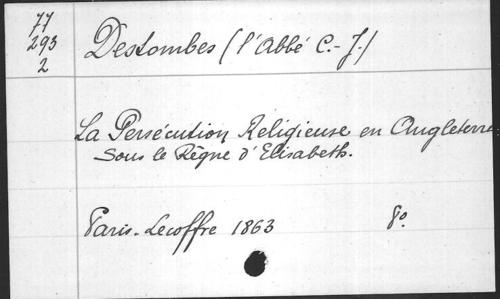 77
293
2
Destombes (l'Abbé C.-J.)
La Persécution Religieuse en Angleterre
Sous le Règne d'Elisabeth.
Paris. Lecoffre 1863 8o.